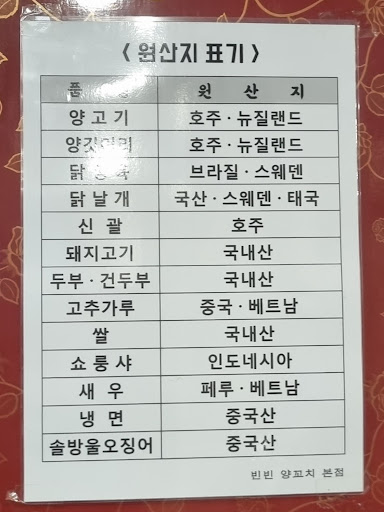 < 원산지 표기 >
품 원 산 지
양 고 기 호주 · 뉴질랜드
호주 · 뉴질랜드
브라질 · 스웨덴
닭 날 개 국산 · 스웨덴 · 태국
신 괄 호주
돼지고기 국내산
두부 · 건두부 국내산
고추가루 중국 · 베트남
쌀 국내산
쇼 룽 샤 인도네시아
새 우 페루 · 베트남
냉 면 중국산
솔방울오징어 중국산
빈빈 양꼬치 본점